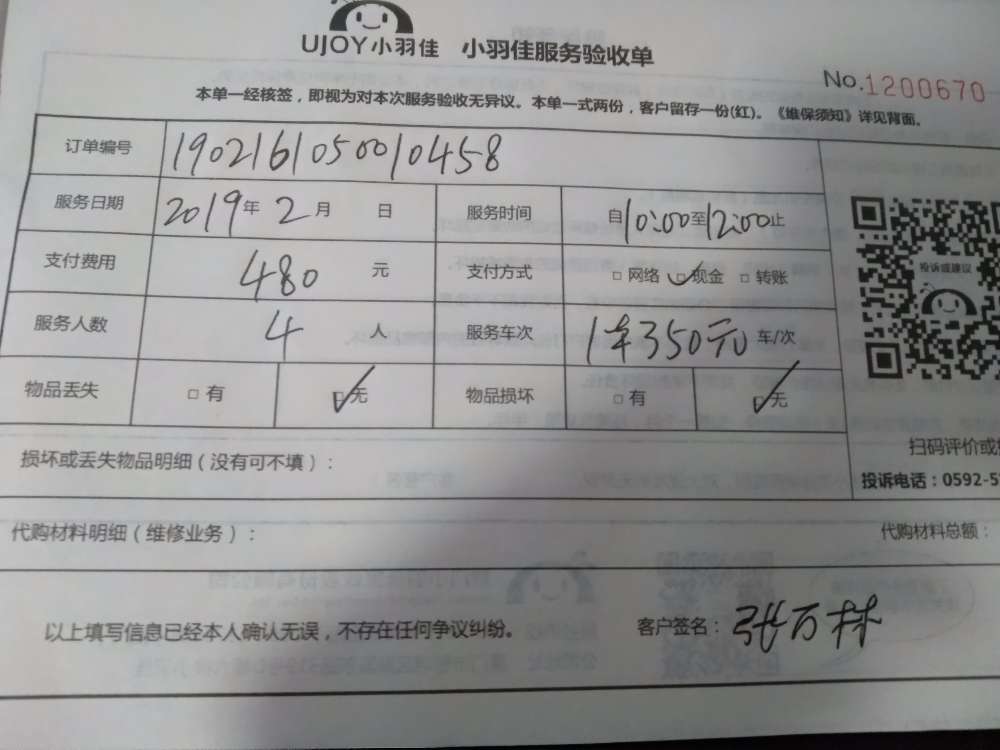 UJOY小羽佳 小羽佳服务验收单
No.1200670
本单一经核签，即视为对本次服务验收无异议。本单一式两份，客户留存一份(红)。《维保须知》详见背面。
订单编号 1902161050010458
服务日期 2019年2月 日 服务时间 自10:00至12:00止
支付费用 480 元 支付方式 □网络 ☑现金 □转账
投诉或建议
服务人数 4 人 服务车次 1车350元 车/次
物品丢失 □有 ☑无 物品损坏 □有 ☑无
扫码评价或
损坏或丢失物品明细（没有可不填）：
投诉电话：0592-5
代购材料明细（维修业务）： 代购材料总额：
以上填写信息已经本人确认无误，不存在任何争议纠纷。 客户签名：张万林